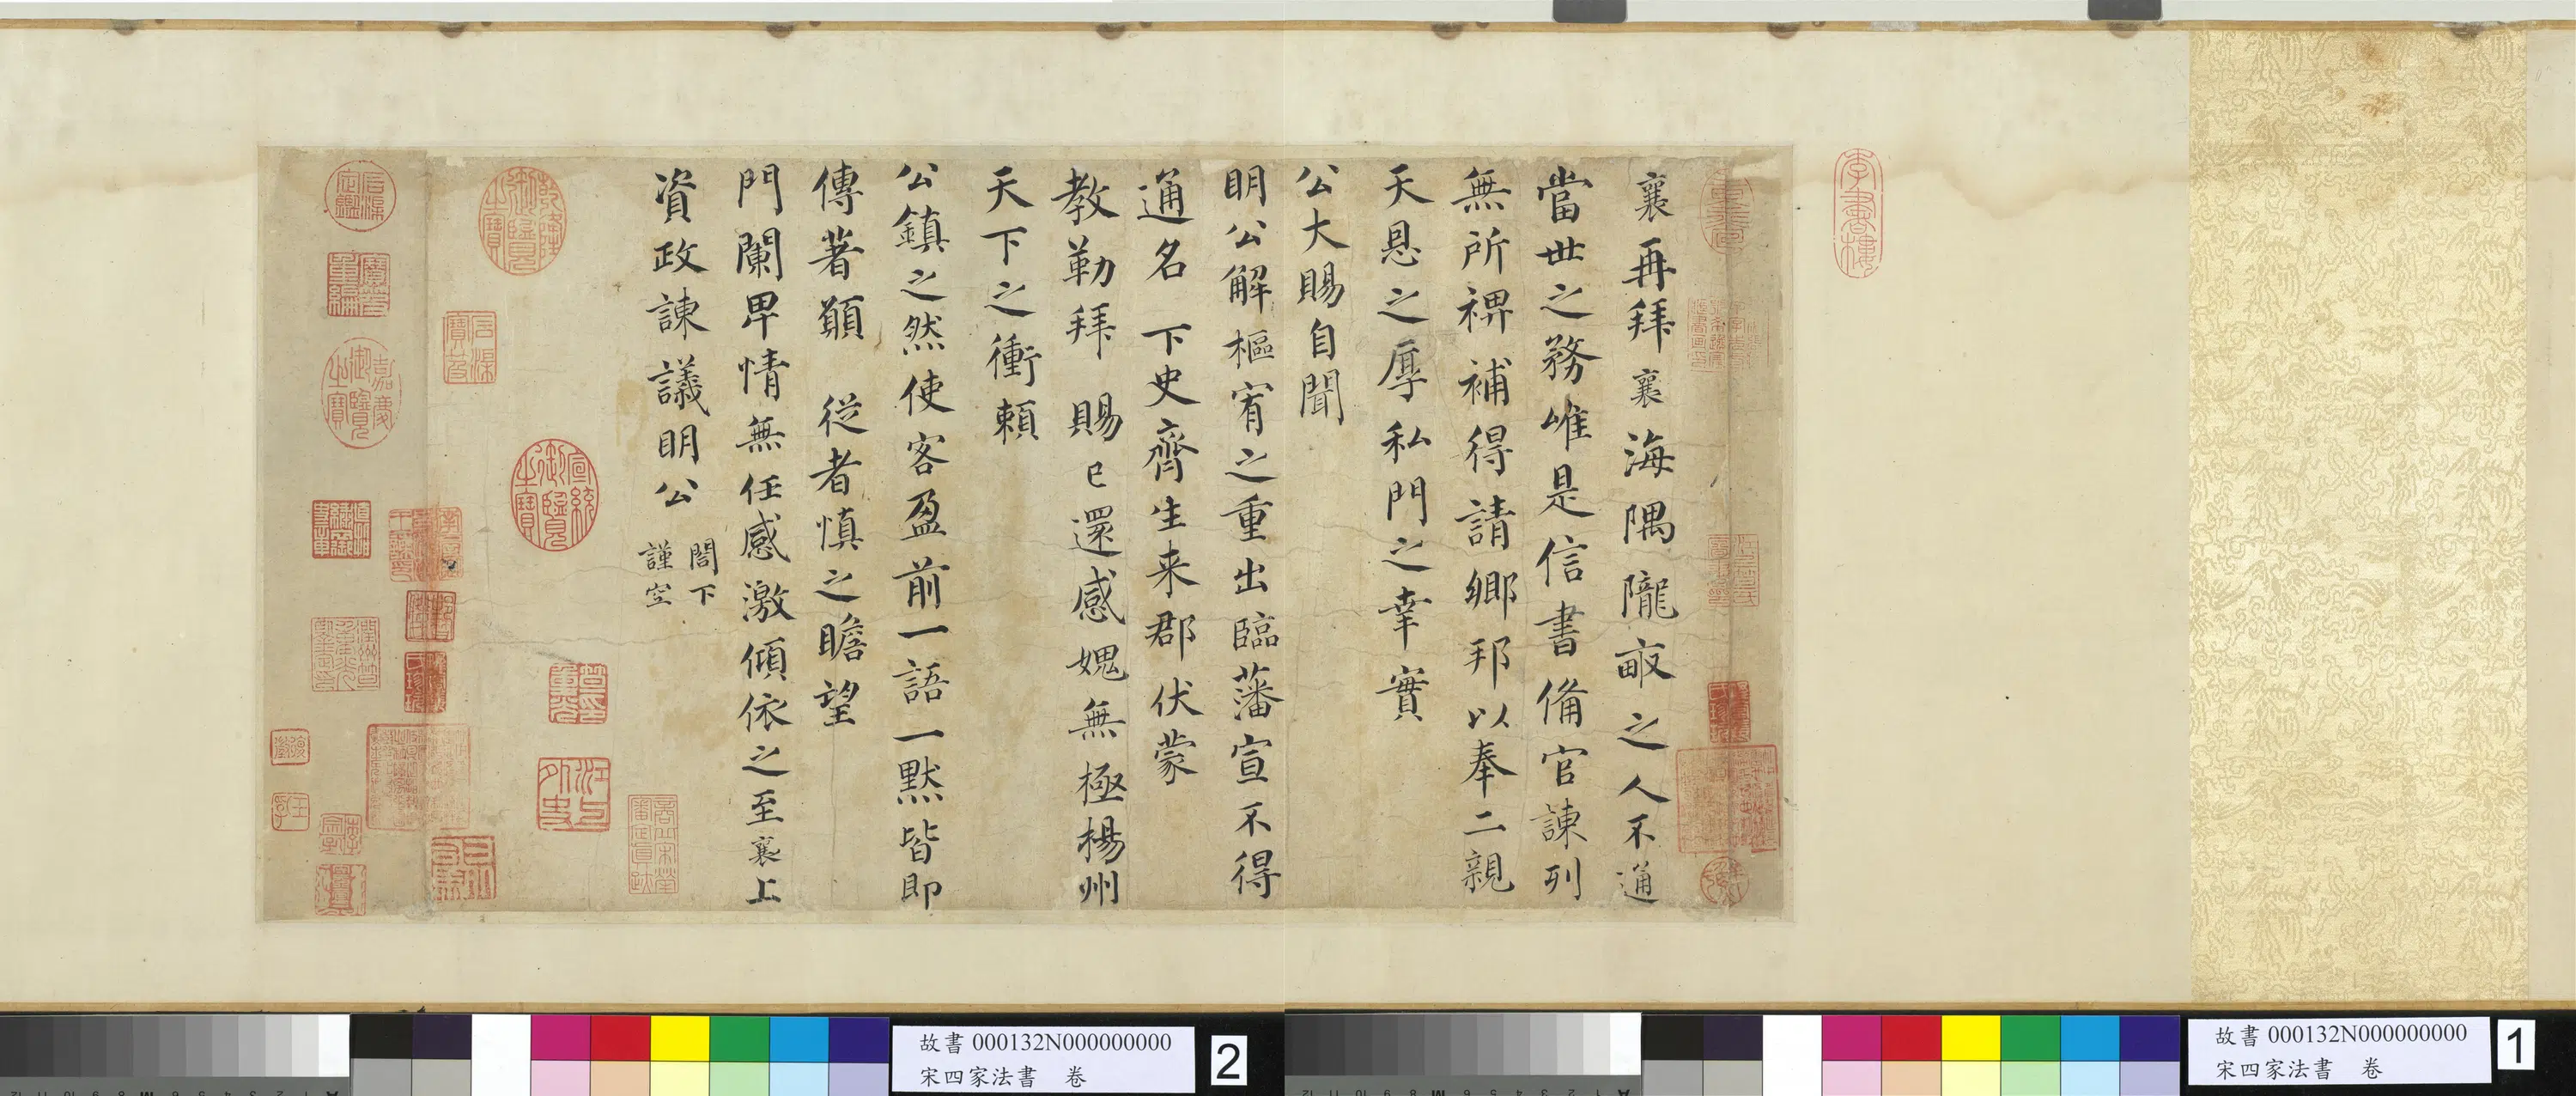 襄再拜襄海隅隴畝之人不通
當世之務唯是信書備官諫列
無所裨補得請鄉邦以奉二親
天恩之厚私門之幸實
公大賜自聞
明公解樞宥之重出臨藩宣不得
通名下史齊生来郡伏蒙
教勒拜賜已還感媿無極楊州
天下之衝賴
公鎮之然使客盈前一語一默皆即
傳著願從者慎之瞻望
門闌卑情無任感激傾依之至襄上
資政諫議明公閤下
謹空
李書樓
乾隆御覽之寶
石渠寶笈
宣統御覽之寶
嘉慶御覽之寶
石渠定鑑
寶笈重編
江上外史
故書 000132N000000000
宋四家法書 卷
2
故書 000132N000000000
宋四家法書 卷
1